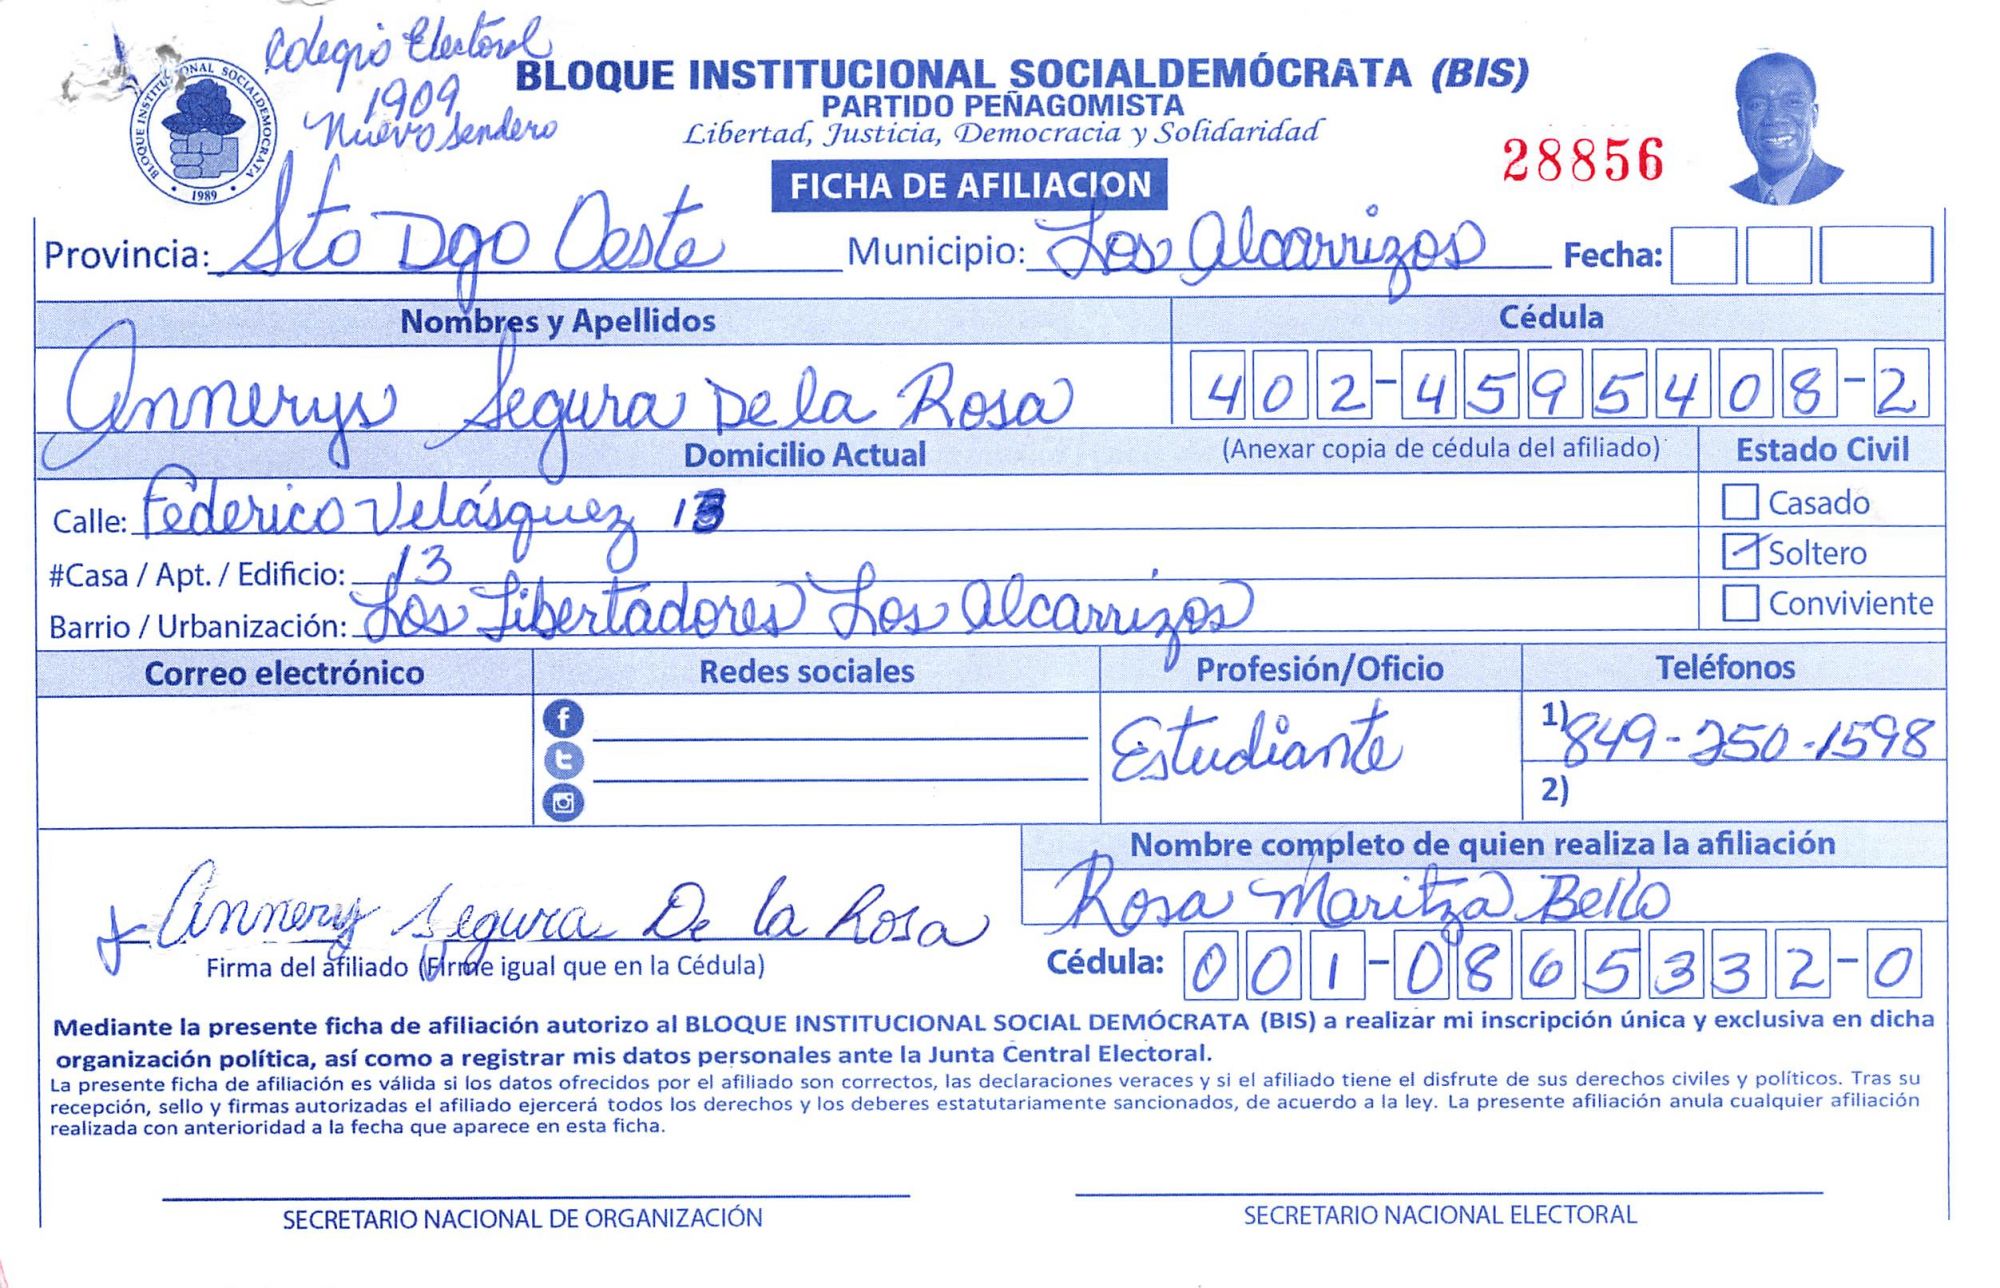 Colegio Electoral
1909
Nuevo Sendero
BLOQUE INSTITUCIONAL SOCIALDEMOCRATA
1989
BLOQUE INSTITUCIONAL SOCIALDEMÓCRATA (BIS)
PARTIDO PEÑAGOMISTA
Libertad, Justicia, Democracia y Solidaridad
FICHA DE AFILIACION
28856
Provincia: Sto Dgo Oeste Municipio: Los Alcarrizos Fecha:
Nombres y Apellidos Cédula
Annerys Segura De la Rosa 402-4595408-2
Domicilio Actual (Anexar copia de cédula del afiliado) Estado Civil
Calle: Federico Velásquez 13 Casado
#Casa / Apt. / Edificio: 13 Soltero
Barrio / Urbanización: Los Libertadores Los Alcarrizos Conviviente
Correo electrónico Redes sociales Profesión/Oficio Teléfonos
Estudiante 1) 849-250-1598
2)
Nombre completo de quien realiza la afiliación
Rosa Maritza Bello
Annery Segura De la Rosa
Firma del afiliado (Firme igual que en la Cédula) Cédula: 001-0865332-0
Mediante la presente ficha de afiliación autorizo al BLOQUE INSTITUCIONAL SOCIAL DEMÓCRATA (BIS) a realizar mi inscripción única y exclusiva en dicha
organización política, así como a registrar mis datos personales ante la Junta Central Electoral.
La presente ficha de afiliación es válida si los datos ofrecidos por el afiliado son correctos, las declaraciones veraces y si el afiliado tiene el disfrute de sus derechos civiles y políticos. Tras su
recepción, sello y firmas autorizadas el afiliado ejercerá todos los derechos y los deberes estatutariamente sancionados, de acuerdo a la ley. La presente afiliación anula cualquier afiliación
realizada con anterioridad a la fecha que aparece en esta ficha.
SECRETARIO NACIONAL DE ORGANIZACIÓN SECRETARIO NACIONAL ELECTORAL